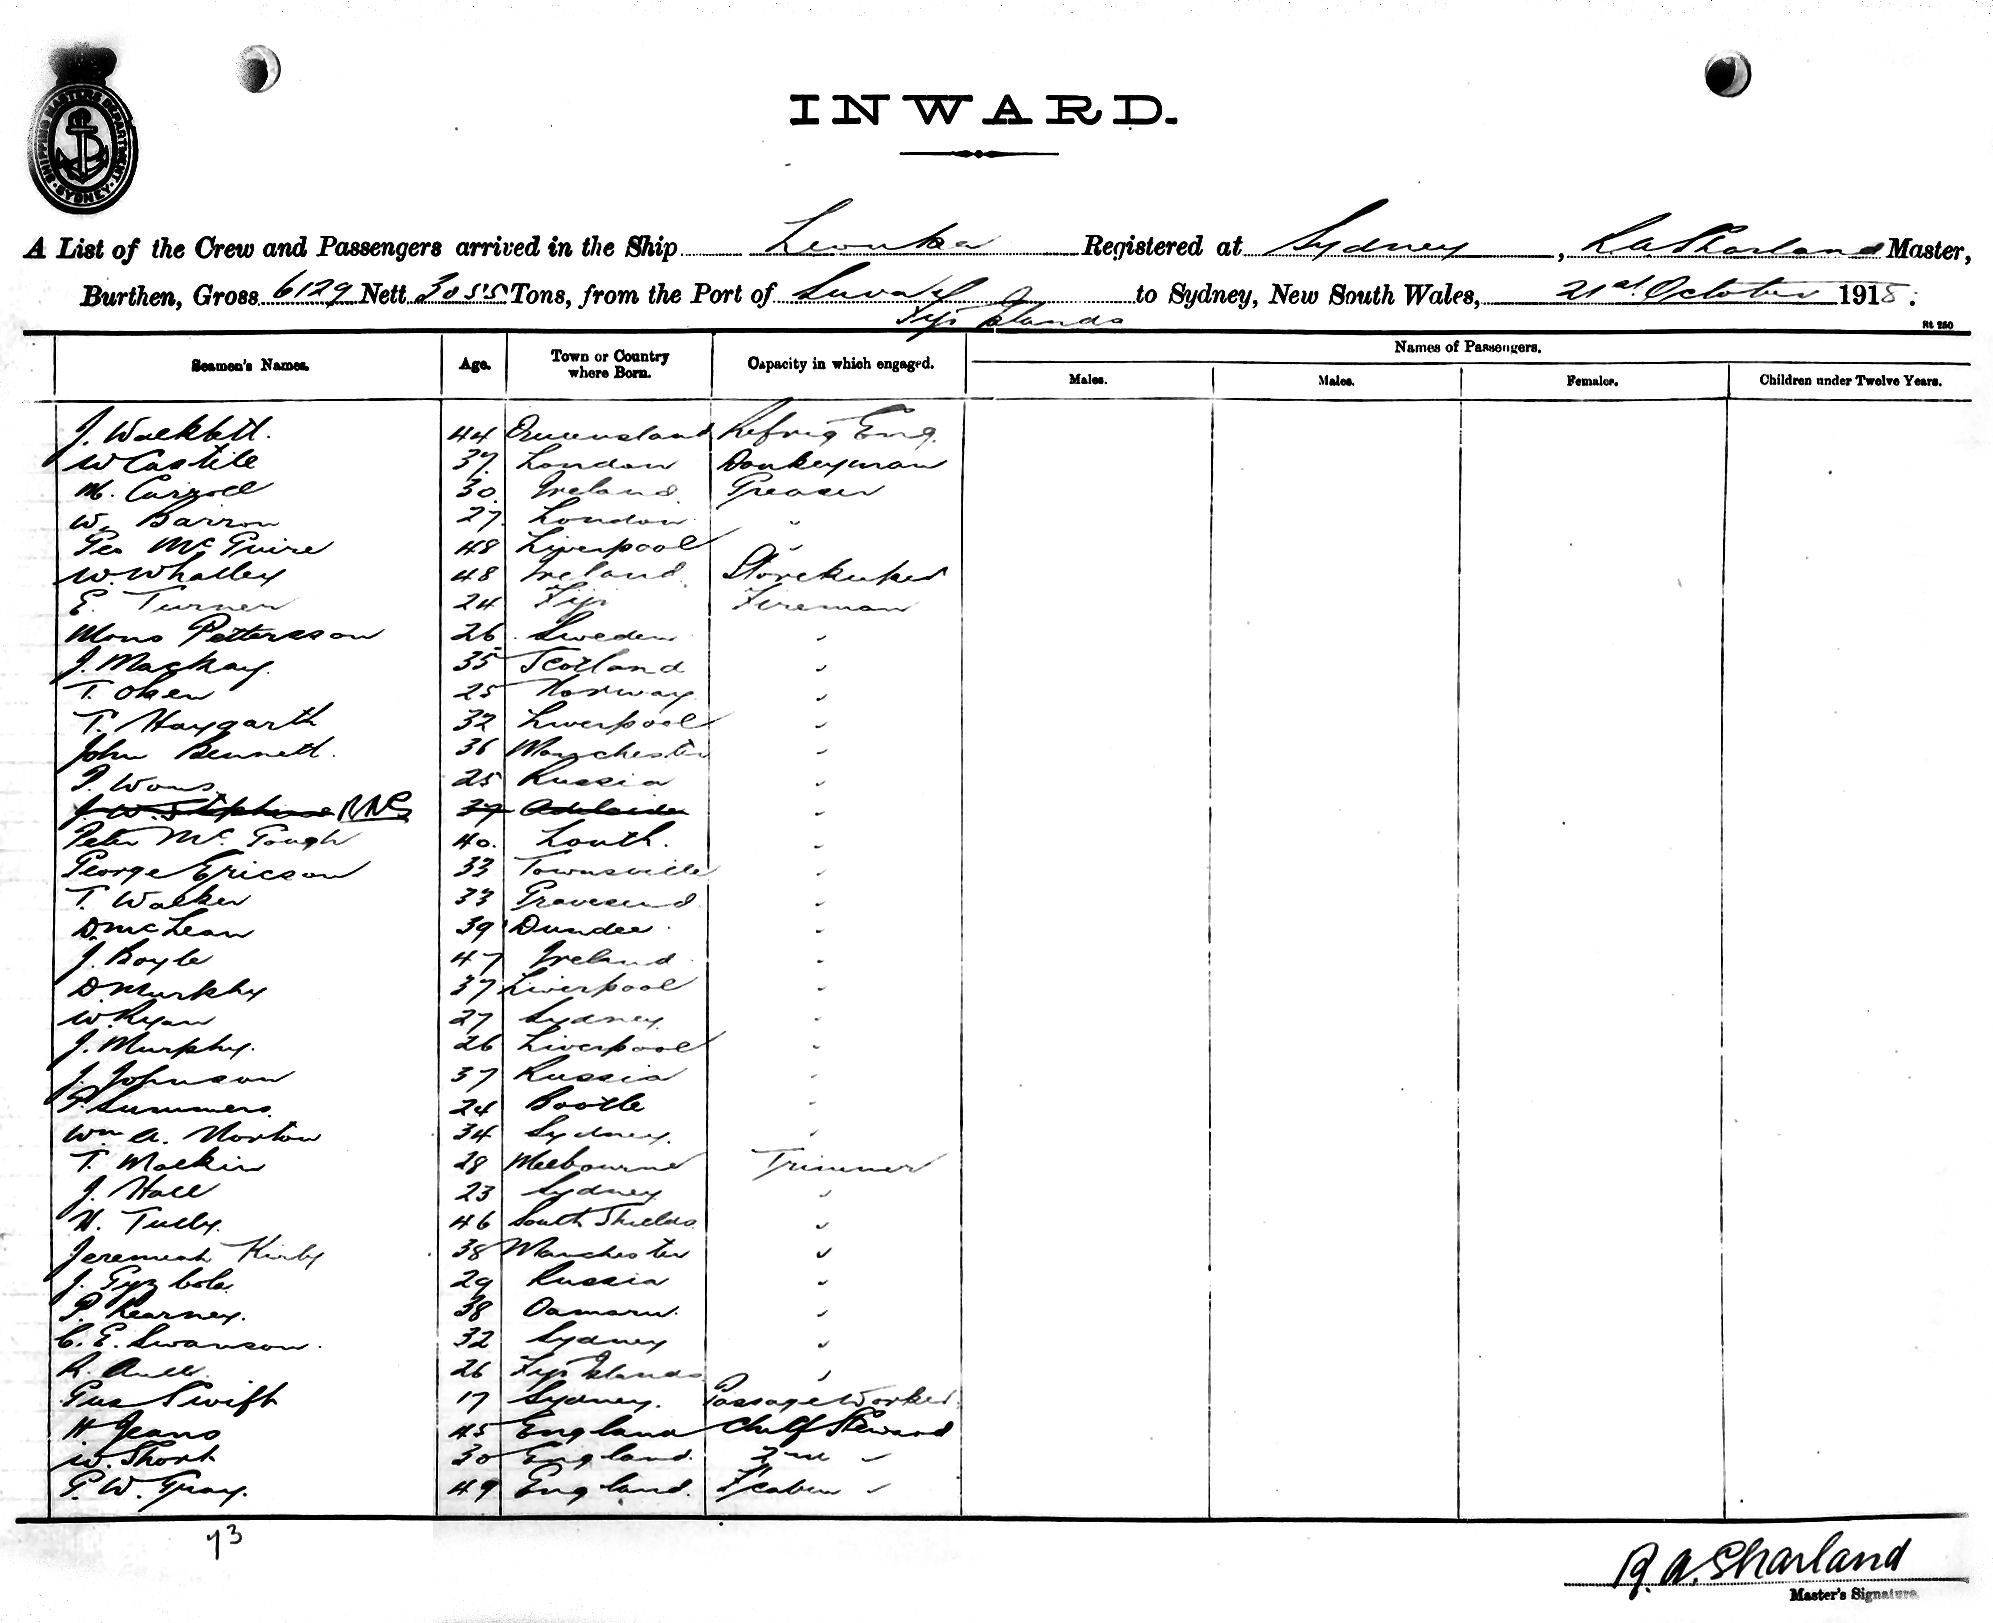 SHIPPING MASTERS DEPARTMENT SYDNEY
INWARD.
A List of the Crew and Passengers arrived in the Ship Levuka Registered at Sydney, R.A. Sharland Master,
Burthen, Gross 6129 Nett 3055 Tons, from the Port of Suva to Sydney, New South Wales, 21st October 1918.
Fiji Islands
Rt 250
Seamen's Names. Age. Town or Country where Born. Capacity in which engaged. Names of Passengers.
Males. Males. Females. Children under Twelve Years.
J. 44 Queensland Refrig Eng.
W Castile 37 London Donkeyman
M. Carroll 30 Ireland Greaser
W. Barron 27 London "
Geo McGuire 48 Liverpool "
W. Whalley 48 Ireland Storekeeper
E. Turner 24 Fiji Fireman
Mons Pettersson 26 Sweden "
J. Mackay. 35 Scotland "
T. Olsen 25 Norway "
T. Haygarth 32 Liverpool "
John Bennett. 36 Manchester "
25 Russia "
J. W. Stephens RAS 37 Adelaide
Peter McGough 40. Louth. "
George Ericson 33 Townsville "
T. Walker 33 Gravesend "
D. McLean 39 Dundee "
J. Boyle 47 Ireland "
D. Murphy 37 Liverpool "
W. Ryan 27 Sydney "
J. Murphy. 26 Liverpool "
J. Johnson 37 Russia "
P. Summers. 24 Bootle "
Wm A. Norton 34 Sydney. "
T. Malkin 28 Melbourne Trimmer
J. Hall 23 Sydney "
H. Tully. 46 South Shields "
Jeremiah Kirby 38 Manchester "
J. 29 Russia "
P. Kearney. 38 Oamaru. "
C. E. Swanson. 32 Sydney "
R. 26 Fiji Islands "
Gus Swift 17 Sydney. Passage Worker
H Jeans 45 England Chief Steward
W. Short 30 England. 2nd "
G. W. Gray. 49 England. "
73
R. A. Sharland
Master's Signature.